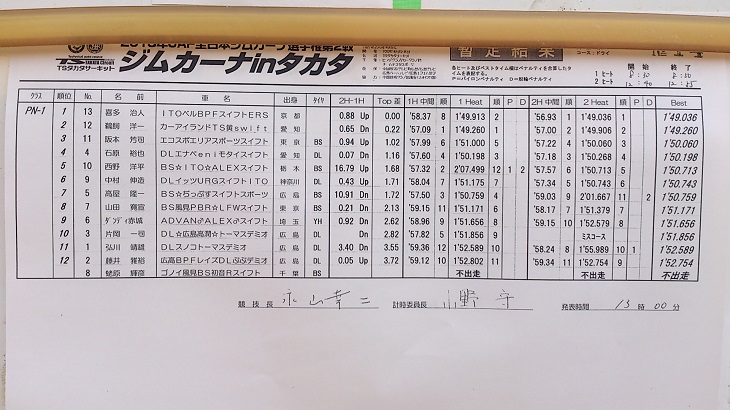 TSタカタサーキット
ジムカーナinタカタ
暫定結果
コース:ドライ
各ヒート及びベストタイム欄はペナルティを合算したタイムを表記する。
P=パイロンペナルティ D=脱輪ペナルティ
開始 終了
1 ヒート
2 ヒート
クラス 順位 No. 名前 車名 出身 タイヤ 2H-1H Top 差 1H 中間 順 1 Heat 順 P D 2H 中間 順 2 Heat 順 P D Best
PN-1 1 13 喜多 治人 ITOベルBPFスイフトERS 京都 0.88 Up 0.00 1'58.37 8 1'49.913 2 '56.93 1 1'49.036 1 1'49.036
2 12 洋一 カーアイランドTS黄swift 愛知 0.65 Dn 0.22 '57.00 1 1'49.260 1 '57.09 2 1'49.906 2 1'49.260
3 11 阪本 芳司 エコスポエリアスポーツスイフト 東京 BS 0.94 Up 1.02 '57.99 6 1'51.000 5 '57.22 4 1'50.060 3 1'50.060
4 4 石原 裕也 DLエナペeniモタイスイフト 広島 DL 0.07 Dn 1.16 '57.60 4 1'50.198 3 '57.18 3 1'50.268 4 1'50.198
5 10 西野 洋平 BS☆ITO☆ALEXスイフト 栃木 BS 16.79 Up 1.68 '57.32 2 2'07.499 12 1 2 '57.57 6 1'50.713 5 1'50.713
6 9 中村 伸造 DLイッツURGスイフトITO 神奈川 DL 0.43 Up 1.71 '58.04 7 1'51.175 7 '57.34 5 1'50.743 6 1'50.743
7 5 高屋 隆一 BSぢっぷすスイフトスポーツ 広島 BS 10.91 Dn 1.72 '57.50 3 1'50.759 4 '59.03 9 2'01.667 11 2 1'50.759
8 7 山田 寛宣 BS風見PBR☆LFWスイフト 東京 BS 0.21 Dn 2.13 '59.15 11 1'51.171 6 '58.17 7 1'51.379 7 1'51.171
9 6 ダンディ赤城 ADVAN♂ALEX♂スイフト 埼玉 YH 0.92 Dn 2.62 '58.96 9 1'51.656 8 '59.15 10 1'52.579 8 1'51.656
10 3 片岡 一司 DL☆広島高潤☆トーマスデミオ 広島 DL Dn 2.82 '57.82 5 1'51.856 9 ミスコース 1'51.856
11 1 弘川 靖雄 DLスノコトーマスデミオ 広島 DL 3.40 Dn 3.55 '59.36 12 1'52.589 10 '58.24 8 1'55.989 10 1 1'52.589
12 2 藤井 雅裕 広高BPFレイズDLぷぷデミオ 広島 DL 0.05 Up 3.72 '59.12 10 1'52.802 11 '59.34 11 1'52.754 9 1'52.754
8 輝彦 ゴノイ風見BS初音Rスイフト 千葉 BS 不出走 不出走 不出走
競技長 計時委員長 小野 守 発表時間 13 時 00 分